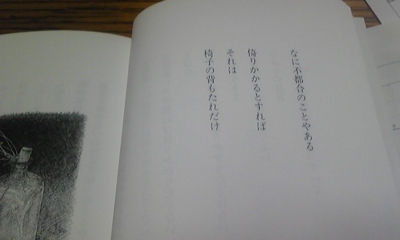 なに不都合のことやある
倚りかかるとすれば
それは
椅子の背もたれだけ